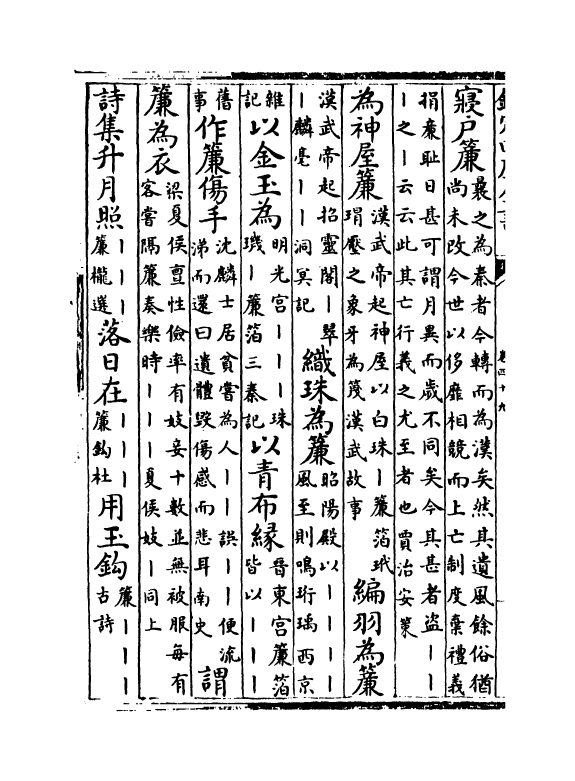 卷四十九
寢户簾曩之為秦者今轉而為漢矣然其遺風餘俗猶
尚未改今世以侈靡相競而上亡制度棄禮義
捐廉耻日甚可謂月異而歲不同矣今其甚者盜丨丨
丨之丨云云此其亡行義之尤至者也賈治安䇿
為神屋簾漢武帝起神屋以白珠丨簾箔玳
瑁壓之象牙為篾漢武故事編羽為簾
漢武帝起招靈閣丨翠
丨麟毫丨丨洞冥記織珠為簾昭陽殿以丨丨丨丨
風至則鳴珩瑀西京
雜記以金玉為明光宫丨丨丨珠
璣丨簾箔三秦記以青布縁晉東宫簾箔
皆以丨丨丨丨
舊事作簾傷手沈麟士居貧嘗為人丨丨誤丨丨便流
涕而還曰遺體毁傷感而悲耳南史謂
簾為衣梁夏侯亶性儉率有妓妾十數並無被服每有
客嘗隔簾奏樂時丨丨丨丨夏侯妓丨同上
詩集升月照丨丨丨丨
簾櫳選落日在丨丨丨
簾鈎杜用玉鈎簾丨丨丨
古詩